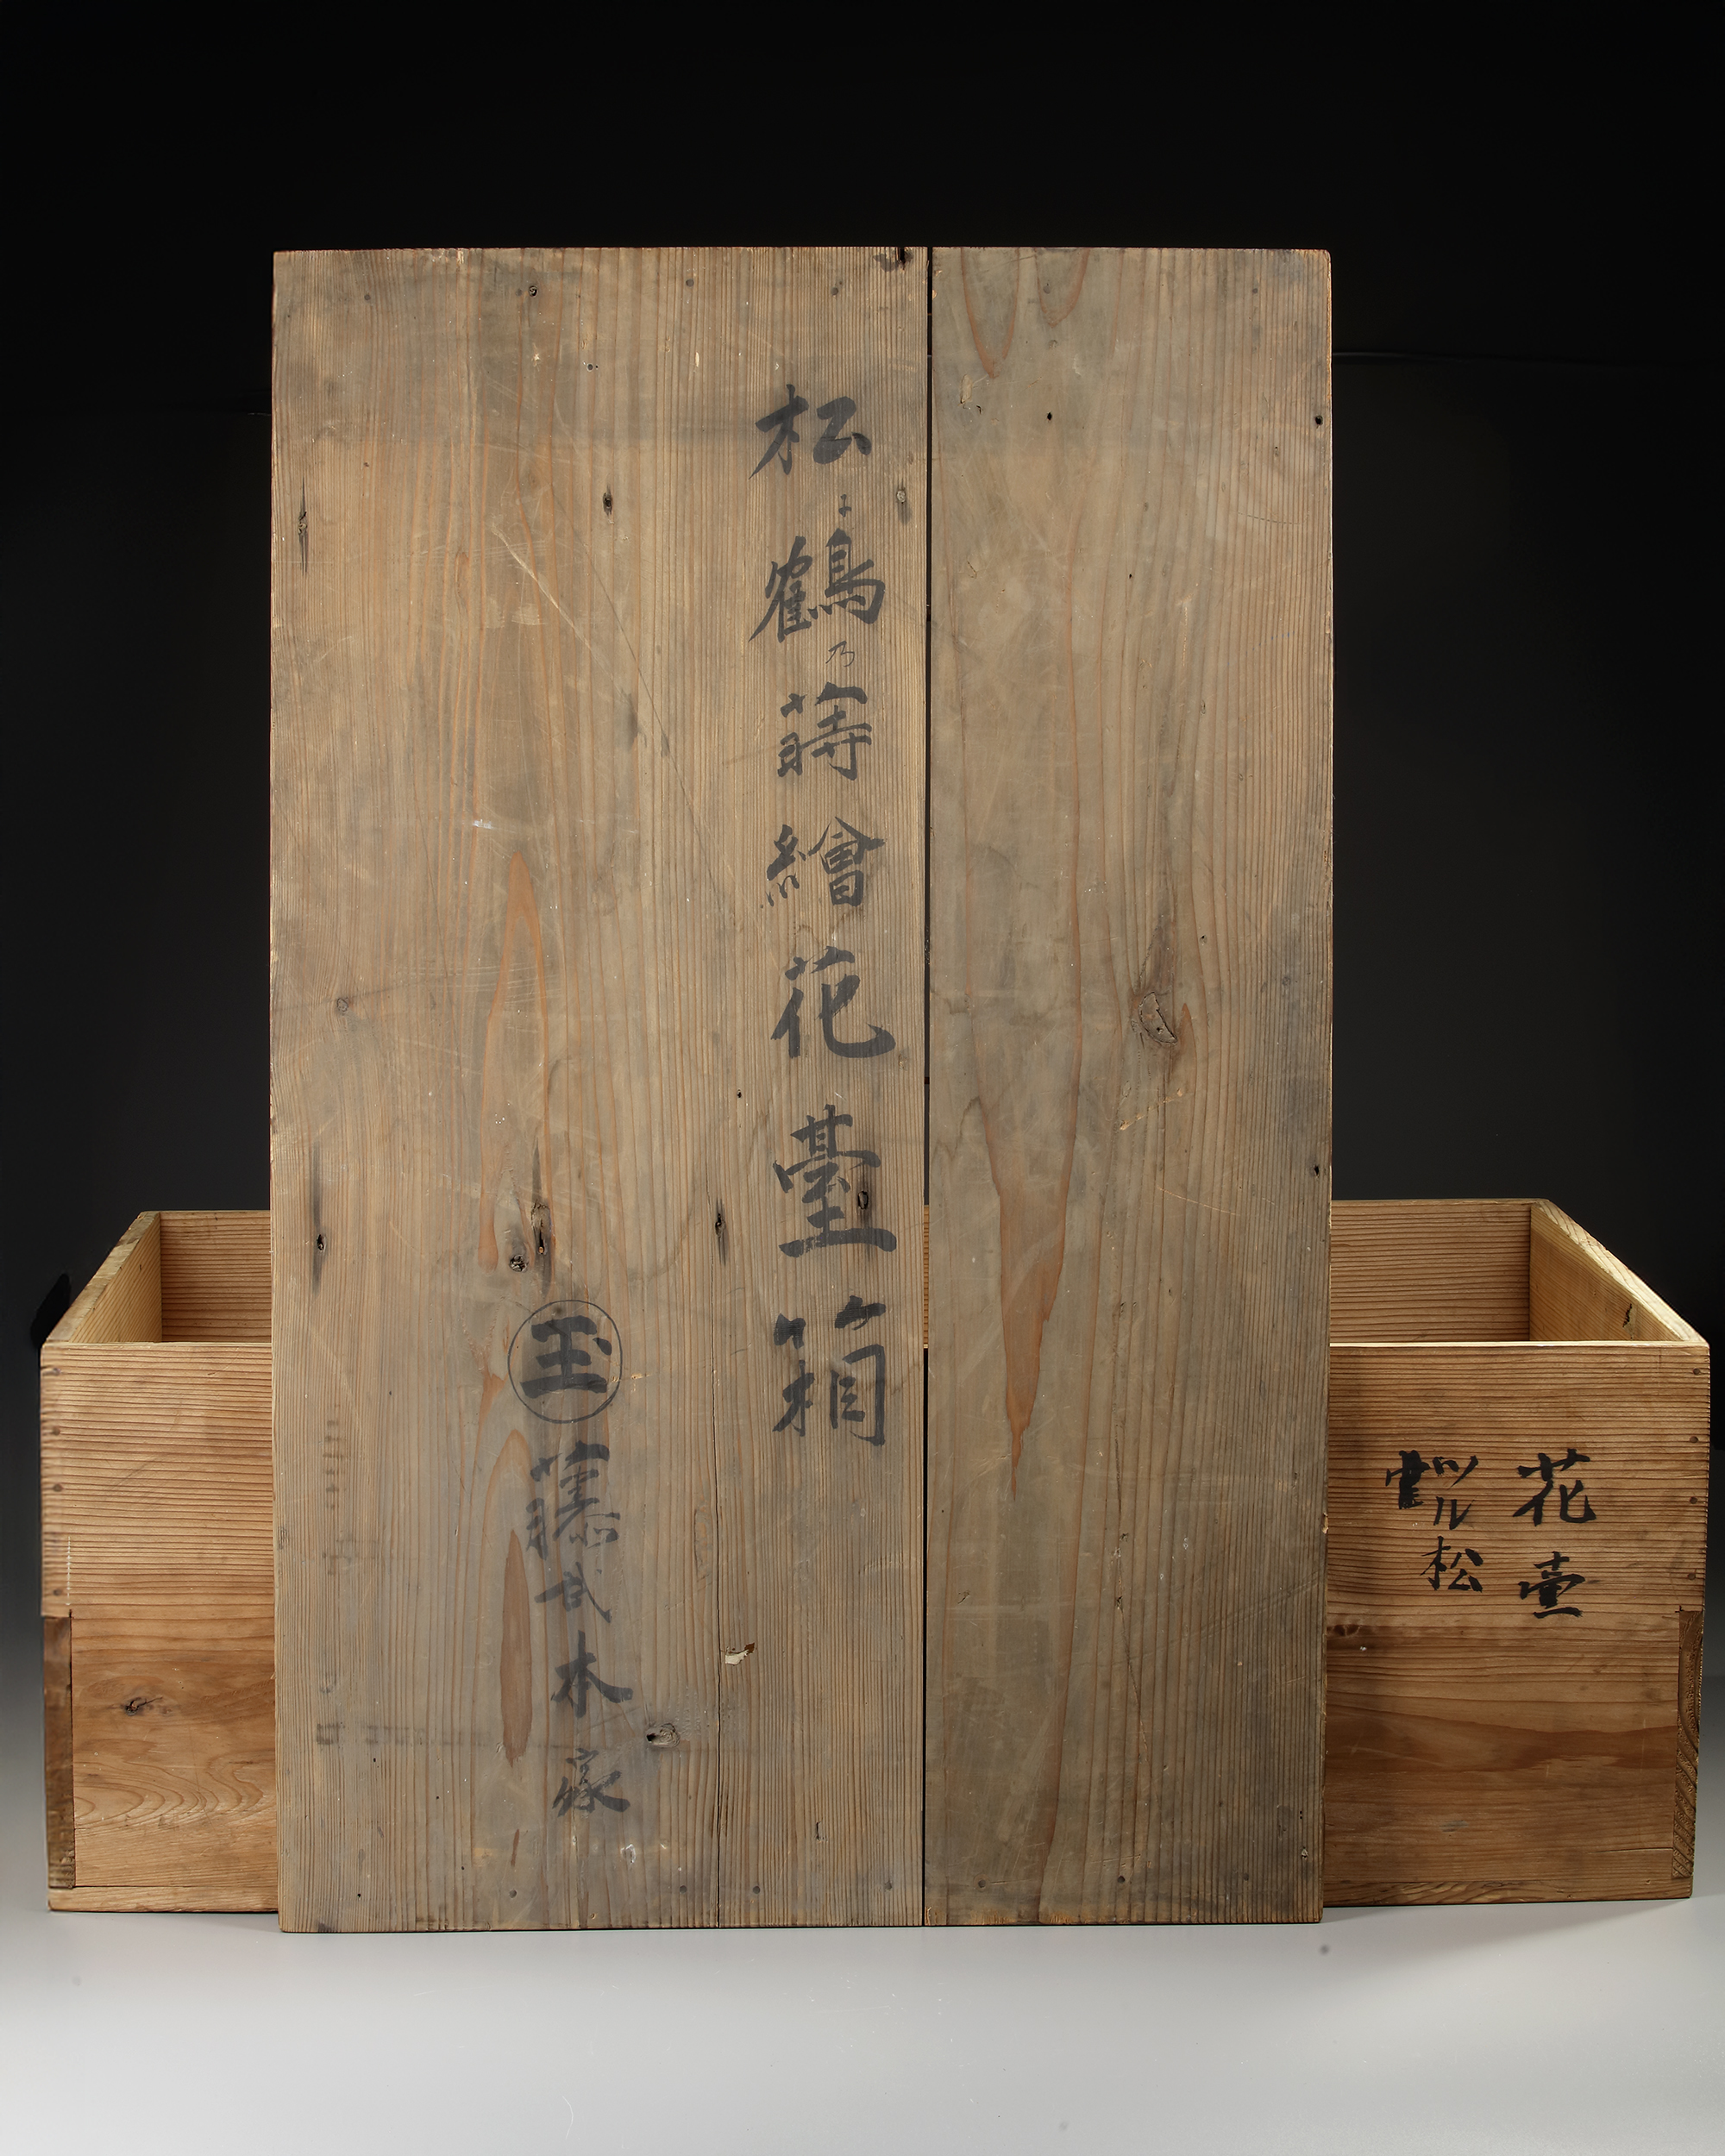 松に鶴乃蒔繪花臺箱
玉 藤武本家
花臺
ツル松